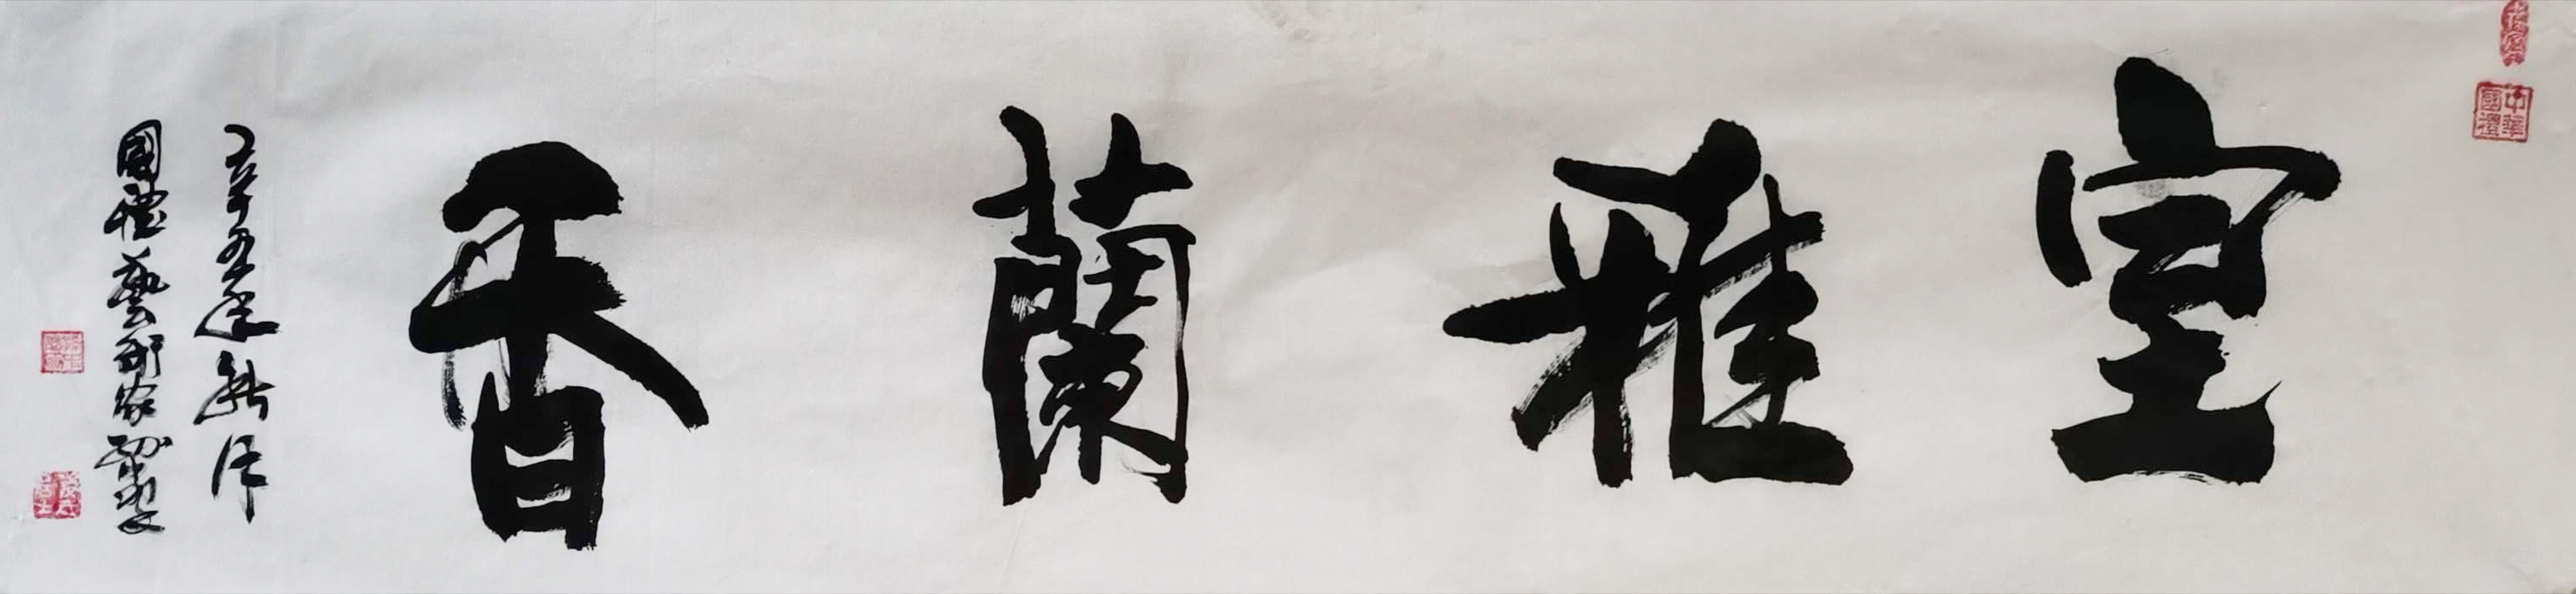 室雅蘭香
辛丑年新作
國禮藝術家
中華國禮